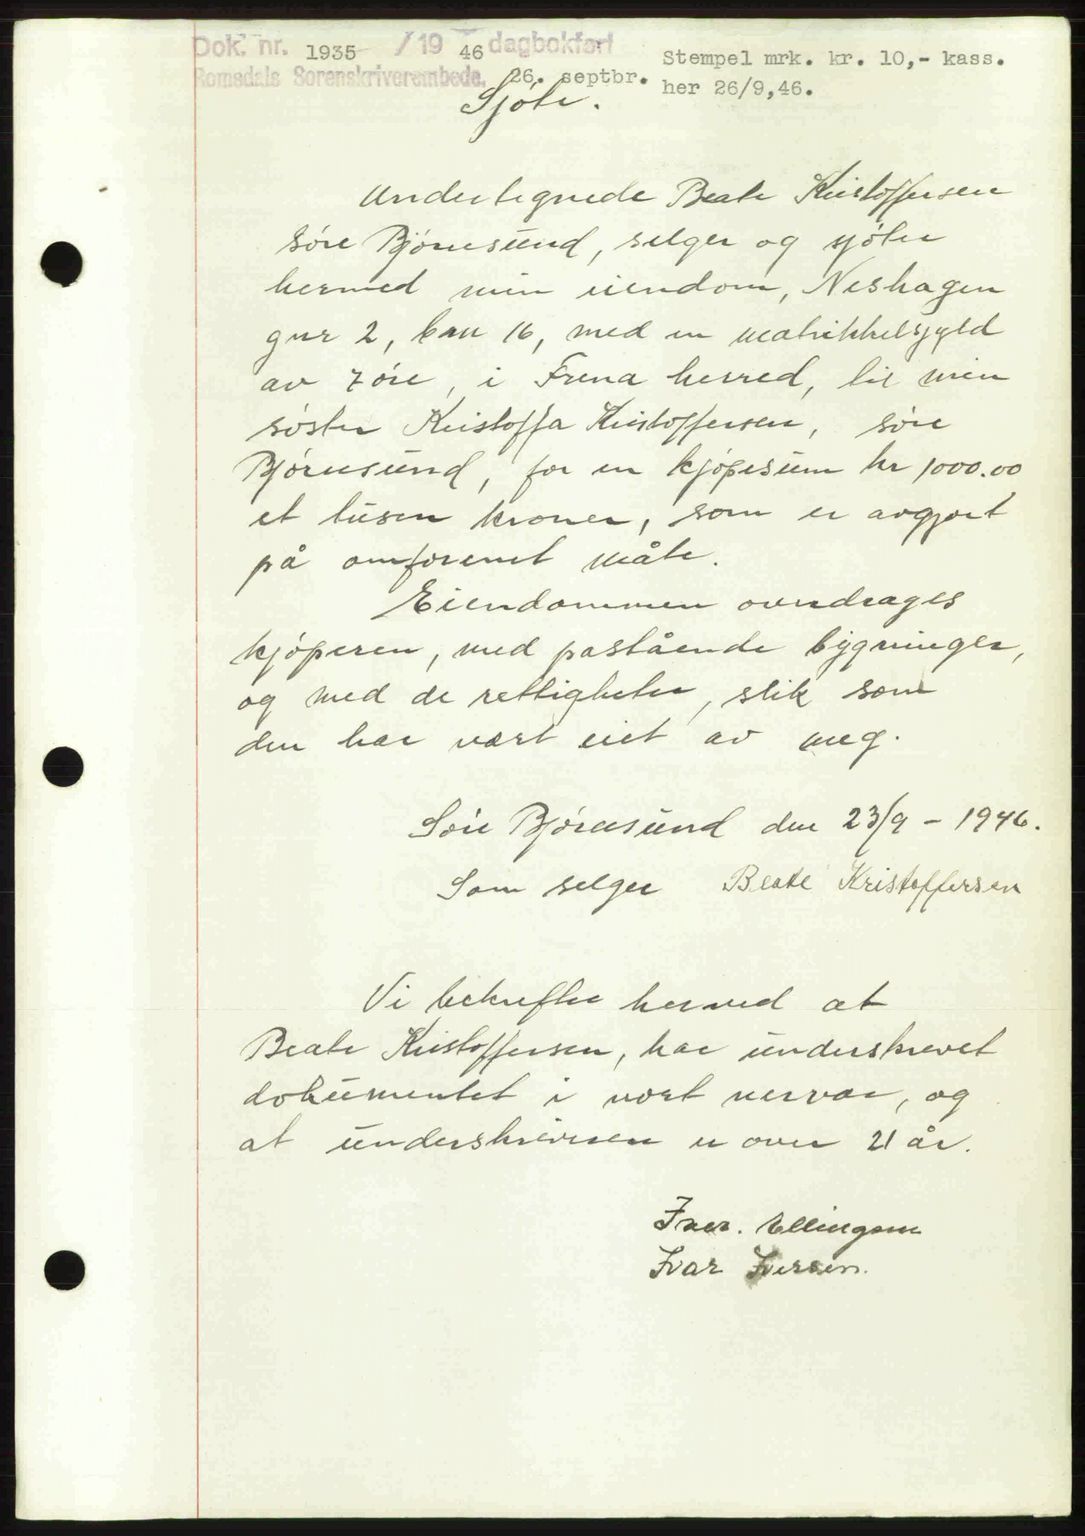 Dok. nr. 1935 / 19 46 dagbokført
Romsdals Sorenskriverembede, 26. septbr.
Stempel mrk. kr. 10,- kass.
her 26/9,46.
Sjöte.
Undertegnede Beate Kristoffersen
söre Björnesund, selger og sjöter
hermed min eiendom, Neshagen
gnr 2, bnr 16, med en matrikkelsjyld
av 7 öre, i Frena herred, til min
söster Kristoffa Kristoffersen, söre
Björnesund, for en kjöpesum kr 1000.00
et tusen kroner, som er avgjort
på omforenet måte.
Eiendommen overdrages
kjöperen, med påstående bygninger,
og med de rettigheter, slik som
den har vært eiet av meg.
Söre Björnsund den 23/9 - 1946.
Som selger Beate Kristoffersen
Vi bekrefter herved at
Beate Kristoffersen, har underskrevet
dokumentet i vort nervær, og
at underskriveren er over 21 år.
Iver. Ellingsen
Ivar Iversen.